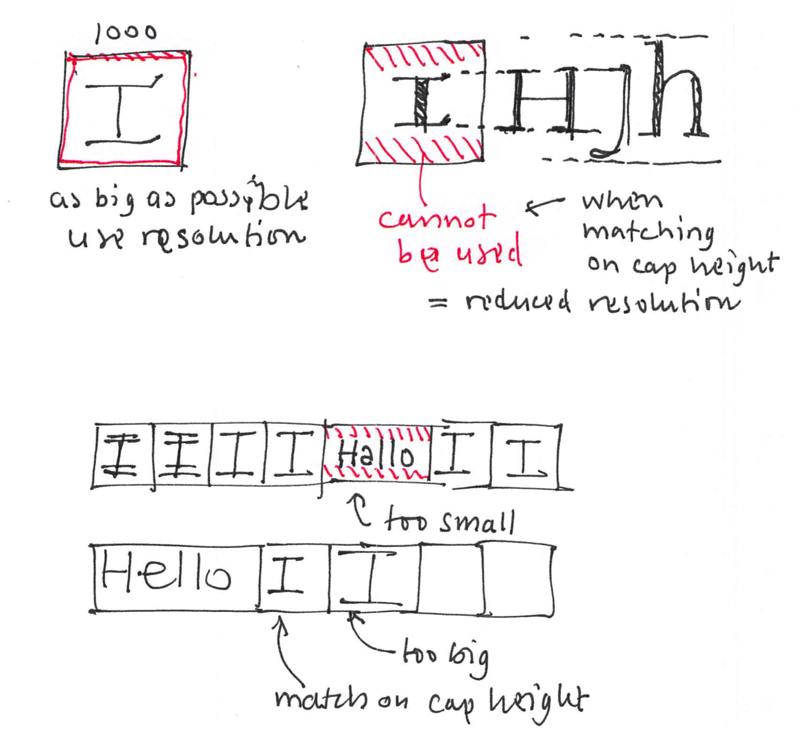 1000
I
I H j h
as big as possible
use resolution
cannot
be used
when
matching
on cap height
= reduced resolution
I I I I Hallo I I
too small
Hello I I
too big
match on cap height